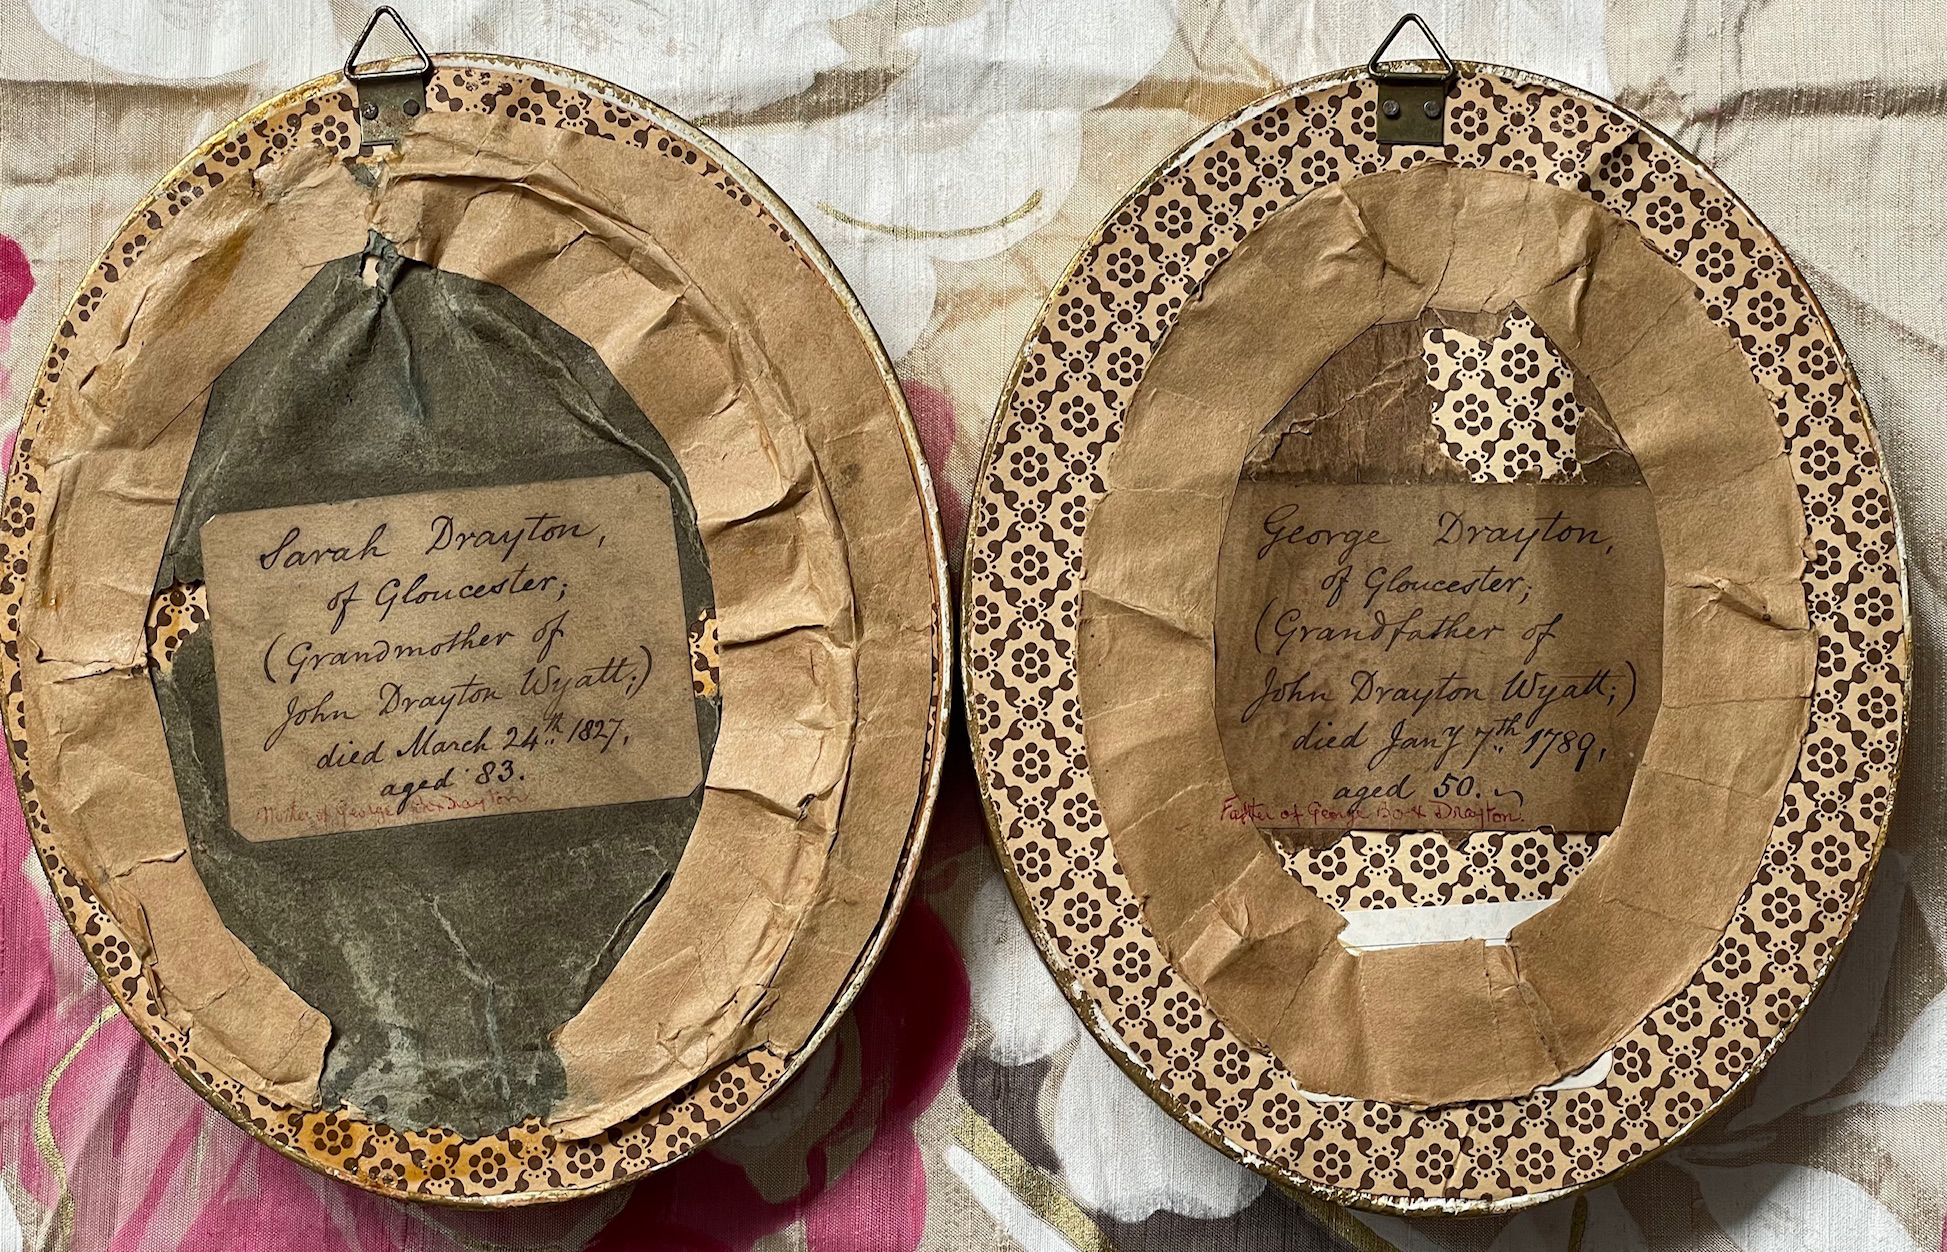 Sarah Drayton,
of Gloucester;
(Grandmother of
John Drayton Wyatt;)
died March 24th 1827,
aged 83.
Mother of George Drayton
George Drayton,
of Gloucester;
(Grandfather of
John Drayton Wyatt;)
died Jany 7th 1789,
aged 50.
Father of George Drayton.